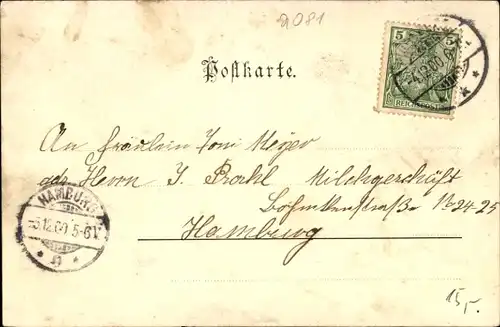 2081
5
4.12.00
REICHSPOST
Postkarte.
An Fräulein Toni Meyer
adr. Herrn J. Prahl Milchgeschäft
No 24-25
Hamburg
HAMBURG
-5.12.00 5-6N.
15,-